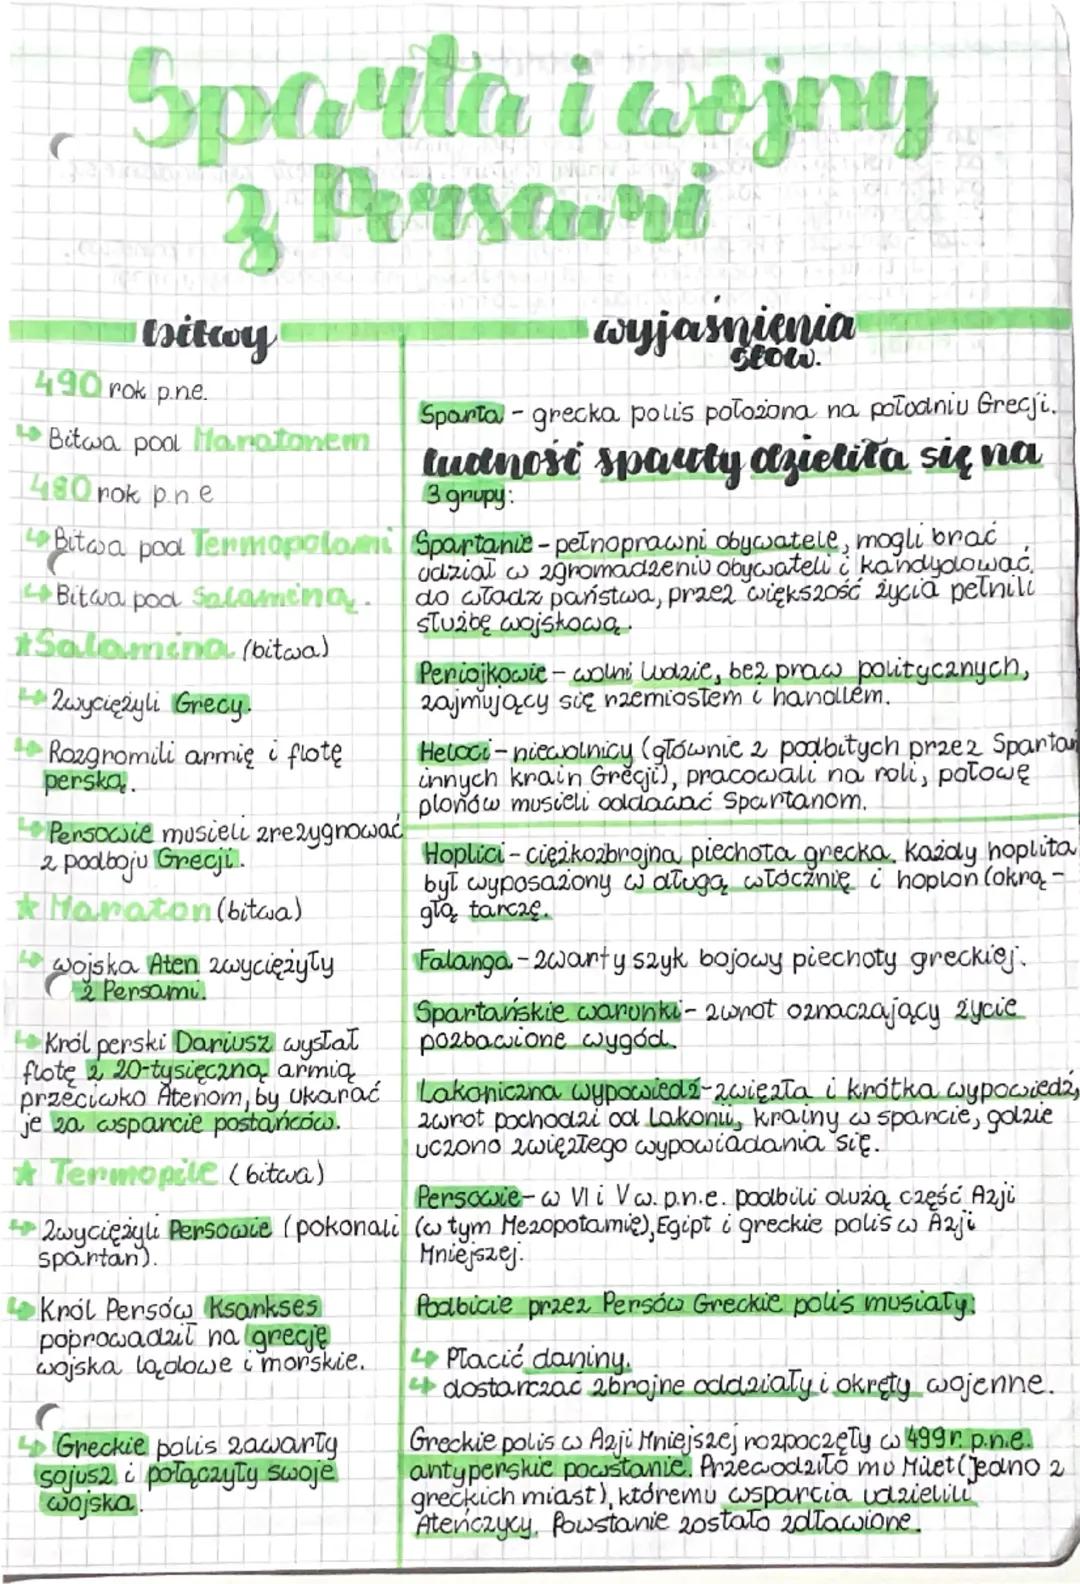 Sparta i wojny
z Persami
bitwy
490 rok p.n.e.
↳ Bitwa pod Maratonem
480 rok p.n.e
↳ Bitwa pod Termopolami
↳ Bitwa pod Salaminą.
★ Salamina (bitwa)
↳ Zwyciężyli Grecy.
↳ Rozgromili armię i flotę
perską.
↳ Persowie musieli zrezygnować
z podboju Grecji.
★ Maraton (bitwa)
↳ wojska Aten zwyciężyły
z Persami.
↳ Król perski Dariusz wysłał
flotę z 20-tysięczną armią
przeciwko Atenom, by ukarać
je za wsparcie postańców.
★ Termopile (bitwa)
↳ Zwyciężyli Persowie (pokonali
spartan).
↳ Król Persów Ksarkses
poprowadził na grecję
wojska lądowe i morskie.
↳ Greckie polis zawarły
sojusz i połączyły swoje
wojska.
wyjaśnienia
słów.
Sparta - grecka polis położona na połodniu Grecji.
ludność sparty dzieliła się na
3 grupy:
Spartanie - pełnoprawni obywatele, mogli brać
udział w zgromadzeniu obywateli i kandydować
do władz państwa, przez większość życia pełnili
służbę wojskową.
Periojkowie - wolni ludzie, bez praw politycznych,
zajmujący się rzemiosłem i handlem.
Heloci - niewolnicy (głównie z podbitych przez Spartan
innych krain Grecji), pracowali na roli, połowę
plonów musieli oddawać Spartanom.
Hoplici - ciężkozbrojna piechota grecka. Każdy hoplita
był wyposażony w długą włócznię i hoplon (okrą-
głą tarczę.
Falanga - zwarty szyk bojowy piechoty greckiej.
Spartańskie warunki - zwrot oznaczający życie
pozbawione wygód.
Lakoniczna wypowiedź - zwięzła i krótka wypowiedź,
zwrot pochodzi od Lakonii, krainy w sparcie, gdzie
uczono zwięzłego wypowiadania się.
Persowie - w VI i V w. p.n.e. podbili dużą część Azji
(w tym Mezopotamię), Egipt i greckie polis w Azji
Mniejszej.
Podbicie przez Persów Greckie polis musiały:
↳ Płacić daniny.
↳ dostarczać zbrojne oddziały i okręty wojenne.
Greckie polis w Azji Mniejszej rozpoczęły w 499 r. p.n.e.
antyperskie powstanie. Przewodziło mu Milet (jedno z
greckich miast), któremu wsparcia udzielili
Ateńczycy. Powstanie zostało zdławione.